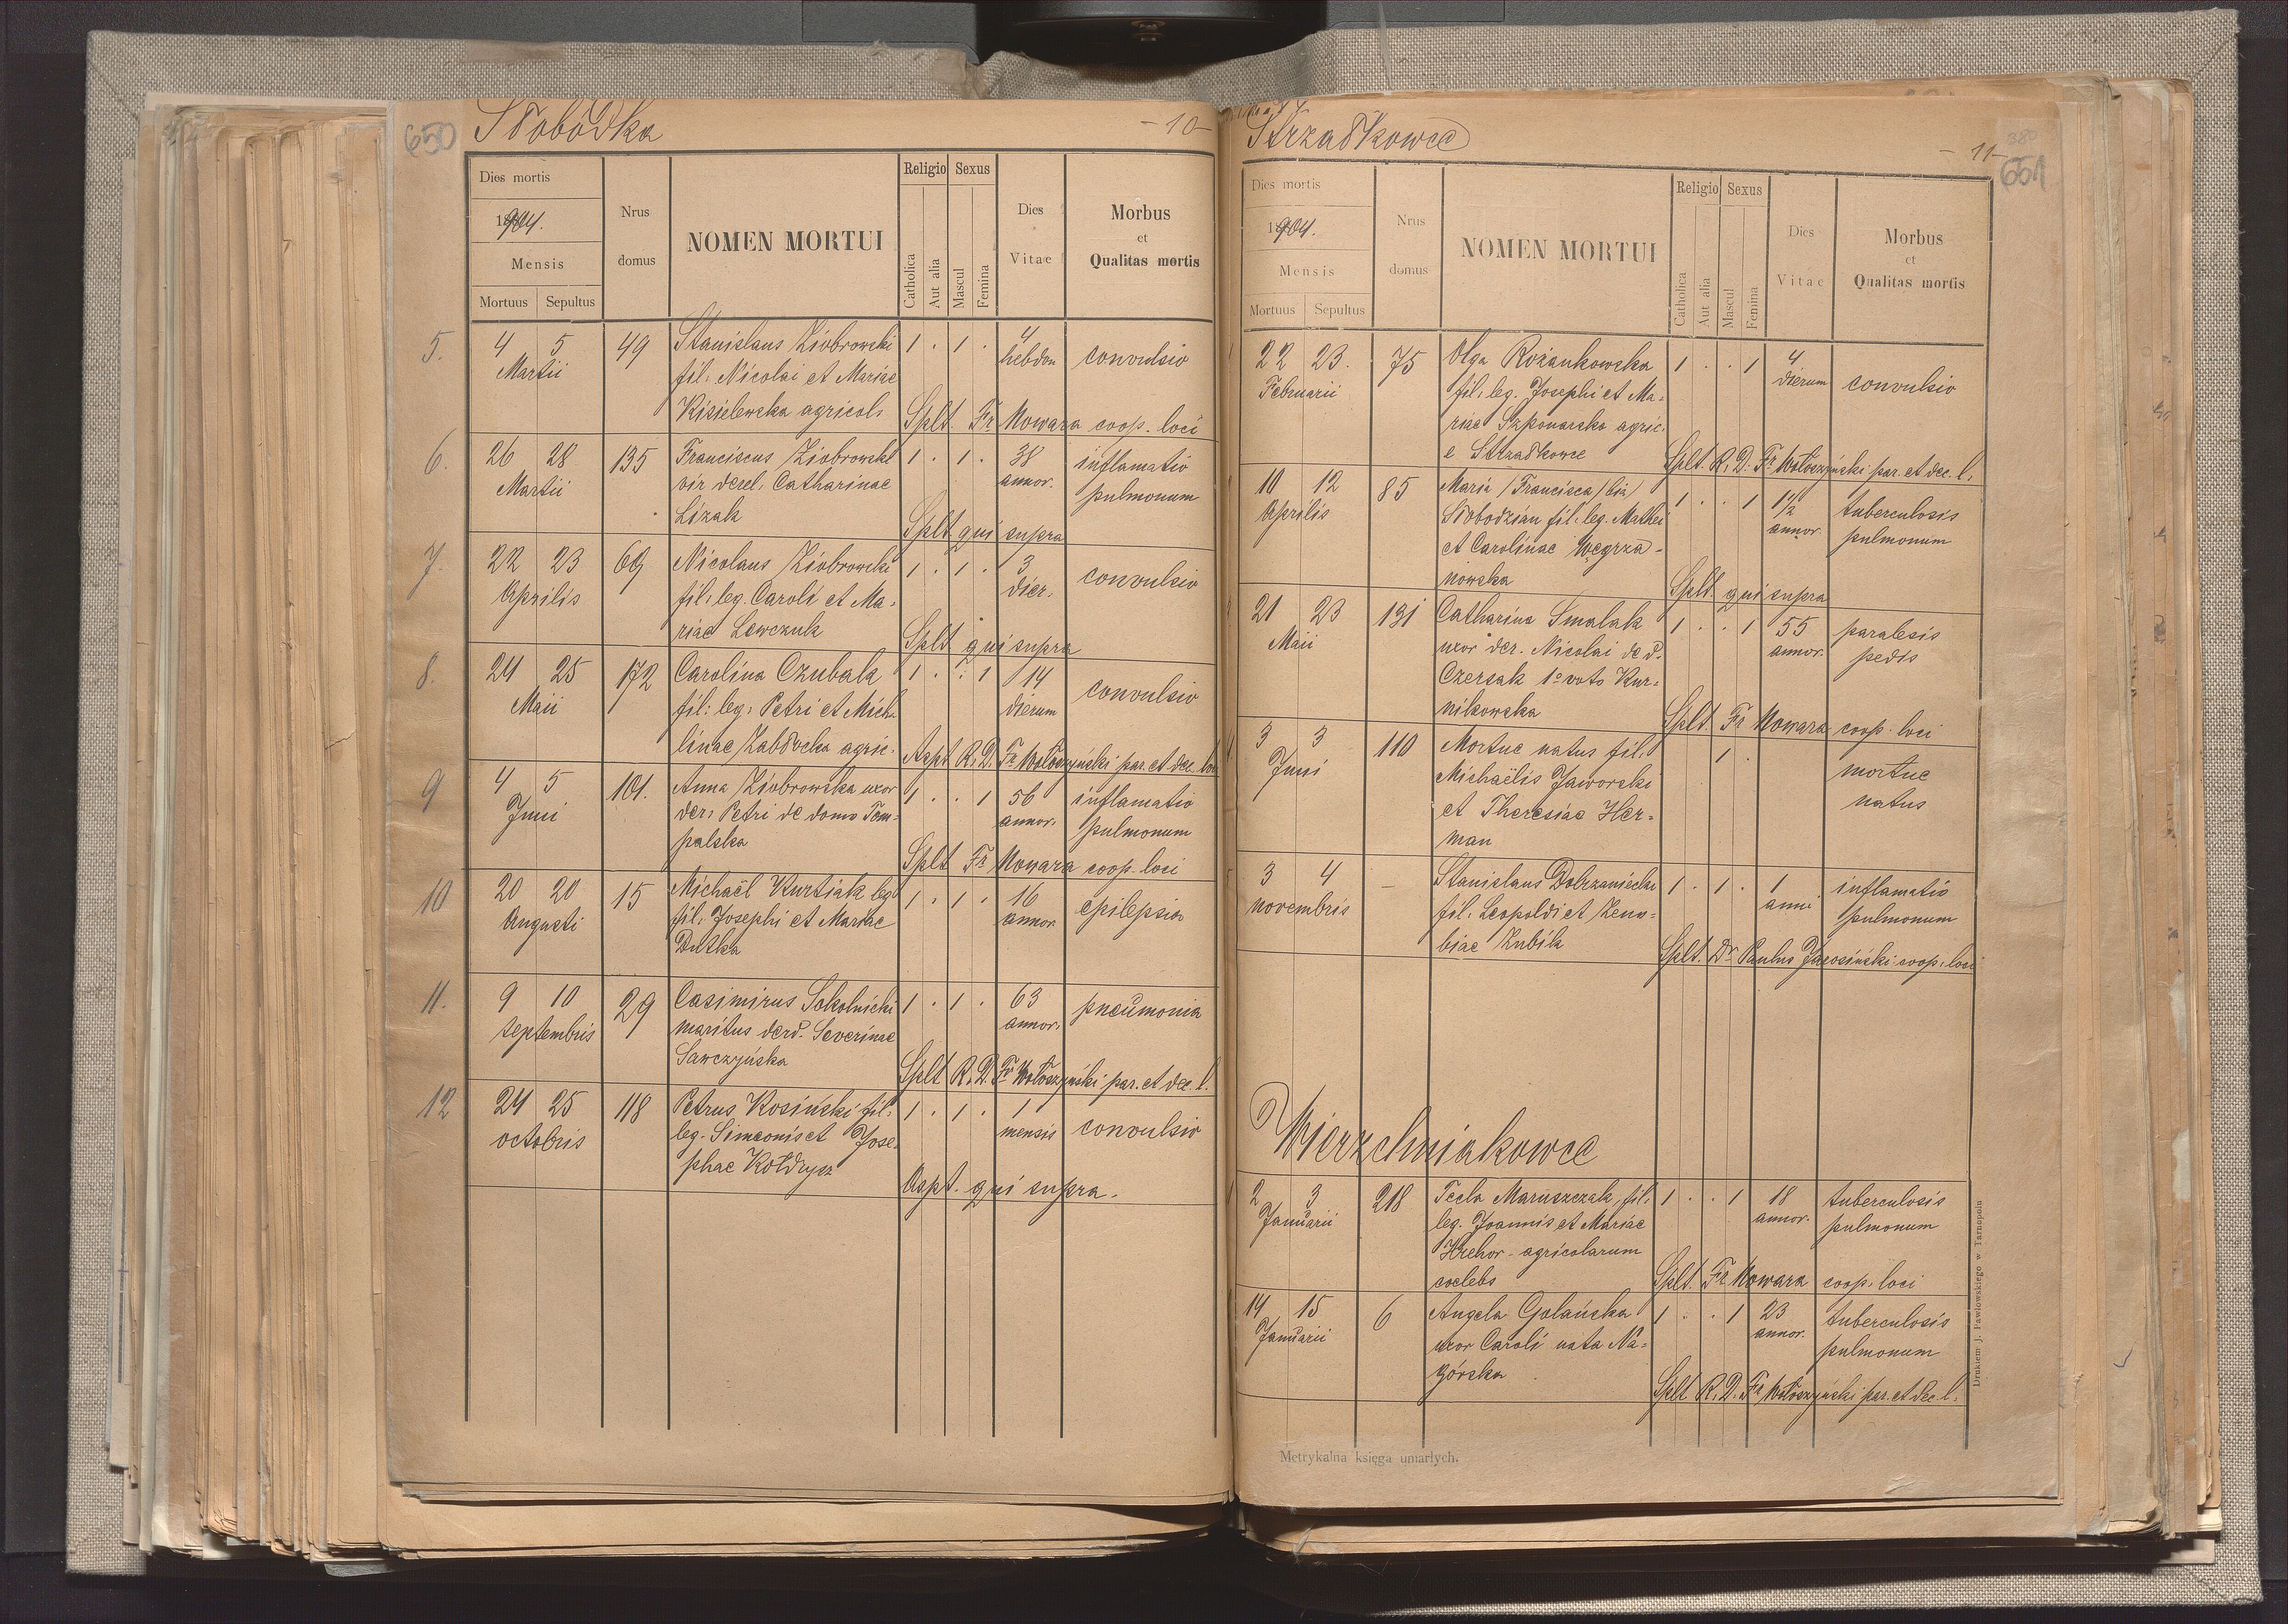 650
Słobódka
- 10 -
Dies mortis
1904.
Mensis
Mortuus Sepultus
Nrus
domus
NOMEN MORTUI
Religio Sexus
Catholica
Aut alia
Mascul
Femina
Dies
Vitae
Morbus
et
Qualitas mortis
5. 4 5 49 Stanislaus Ziobrowski 1 . 1 . 4 convulsio
Martii fil. Nicolai et Mariae hebdom
Kisielewska agricol.
Splt. Fr Nowara coop. loci
6. 26 28 135 Franciscus Ziobrowski 1 . 1 . 38 inflamatio
Martii vir derel. Catharinae annor. pulmonum
Lizak
Splt qui supra
7. 22 23 69 Nicolaus Ziobrowski 1 . 1 . 3 convulsio
Aprilis fil. leg. Caroli et Ma- dier.
riae Lewczuk
Splt qui supra
8. 24 25 172 Carolina Czubala 1 . . 1 14 convulsio
Maii fil: leg: Petri et Micha dierum
linae Zabłocka agric.
Aspt R. D. Fr Wołoszyński par. et dec. loci
9 4 5 101. Anna Ziobrowska uxor 1 . . 1 56 inflamatio
Junii der: Petri de domo Tom- annor. pulmonum
palska
Splt Fr Nowara coop. loci
10 20 20 15 Michaël Kurtiak leg. 1 . 1 . 16 epilepsia
Augusti fil. Josephi et Mariae annor.
Dutka
11. 9 10 29 Casimirus Sokolnicki 1 . 1 . 63 pneumonia
septembris maritus derel. Severinae annor.
Sawczyńska
Splt R. D. Fr Wołoszyński par. et dec. l.
12 24 25 118 Petrus Kosiński fil. 1 . 1 . 1 convulsio
octobris leg. Simeonis et Jose- mensis
phae Kołdrysz
Aspt. qui supra.
Strzałkowce
- 11 -
38
651
Dies mortis
1904.
Mensis
Mortuus Sepultus
Nrus
domus
NOMEN MORTUI
Religio Sexus
Catholica
Aut alia
Mascul
Femina
Dies
Vitae
Morbus
et
Qualitas mortis
22 23. 75 Olga Rożankowska 1 . . 1 4 convulsio
Februarii fil. leg. Josephi et Ma- dierum
riae Szponarska agric.
e Strzałkowce
Splt. R. D. Fr Wołoszyński par. et dec. l.
10 12 85 Maria / Francisca / bin / 1 . . 1 1/2 tuberculosis
Aprilis Słobodzian fil. leg. Mathei annor. pulmonum
et Carolinae Węgrza-
nowska
Splt. qui supra
21 23 131 Catharina Smalak 1 . . 1 55 paralesis
Maii uxor der. Nicolai de d. annor. pedis
Czersak 1º voto Kur-
nikowska
Splt. Fr Nowara coop. loci
3 3 110 Mortue natus fil. 1 . mortue
Junii Michaëlis Jaworski natus
et Theresiae Her-
man
3 4 – Stanislaus Dobrzaniecki 1 . 1 . 1 inflamatio
novembris fil. Leopoldi et Zeno- anni pulmonum
biae Zubik
Splt. Dr Paulus Jarosiński coop. loci
Wierzchniakowce
1 2 3 218 Tecla Maruszczak, fil. 1 . . 1 18 tuberculosis
Januarii leg. Joannis et Mariae annor. pulmonum
Hrehor - agricolarum
coelebs
Splt. Fr Nowara coop. loci
14 15 6 Angela Golańska 1 . . 1 23 tuberculosis
Januarii uxor Caroli nata Na- annor. pulmonum
górska
Splt R. D. Fr Wołoszyński par. et dec. l.
Metrykalna księga umarłych.
Drukiem J. Pawlowskiego w Tarnopolu